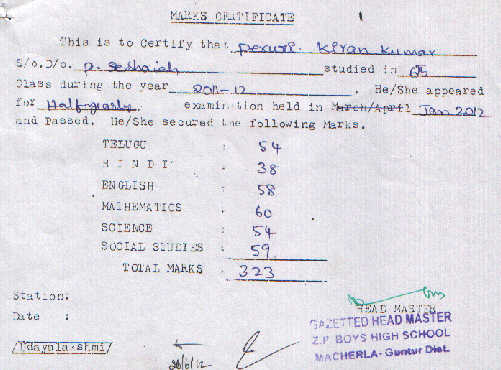 MARKS CERTIFICATE
This is to Certify that Peruri. Kiran Kumar
S/o.D/o. P. Seshaiah studied in
Class during the year 2011-12 . He/She appeared
for Halfyearly examination held in March/April Jan 2012
and Passed. He/She secured the following Marks.
TELUGU : 54
HINDI : 38
ENGLISH : 58
MATHEMATICS : 60
SCIENCE : 54
SOCIAL STUDIES : 59
TOTAL MARKS : 323
Station:
Date :
HEAD MASTER
GAZETTED HEAD MASTER
Z.P. BOYS HIGH SCHOOL
MACHERLA- Guntur Dist.
/Udayalakshmi/
26/6/12